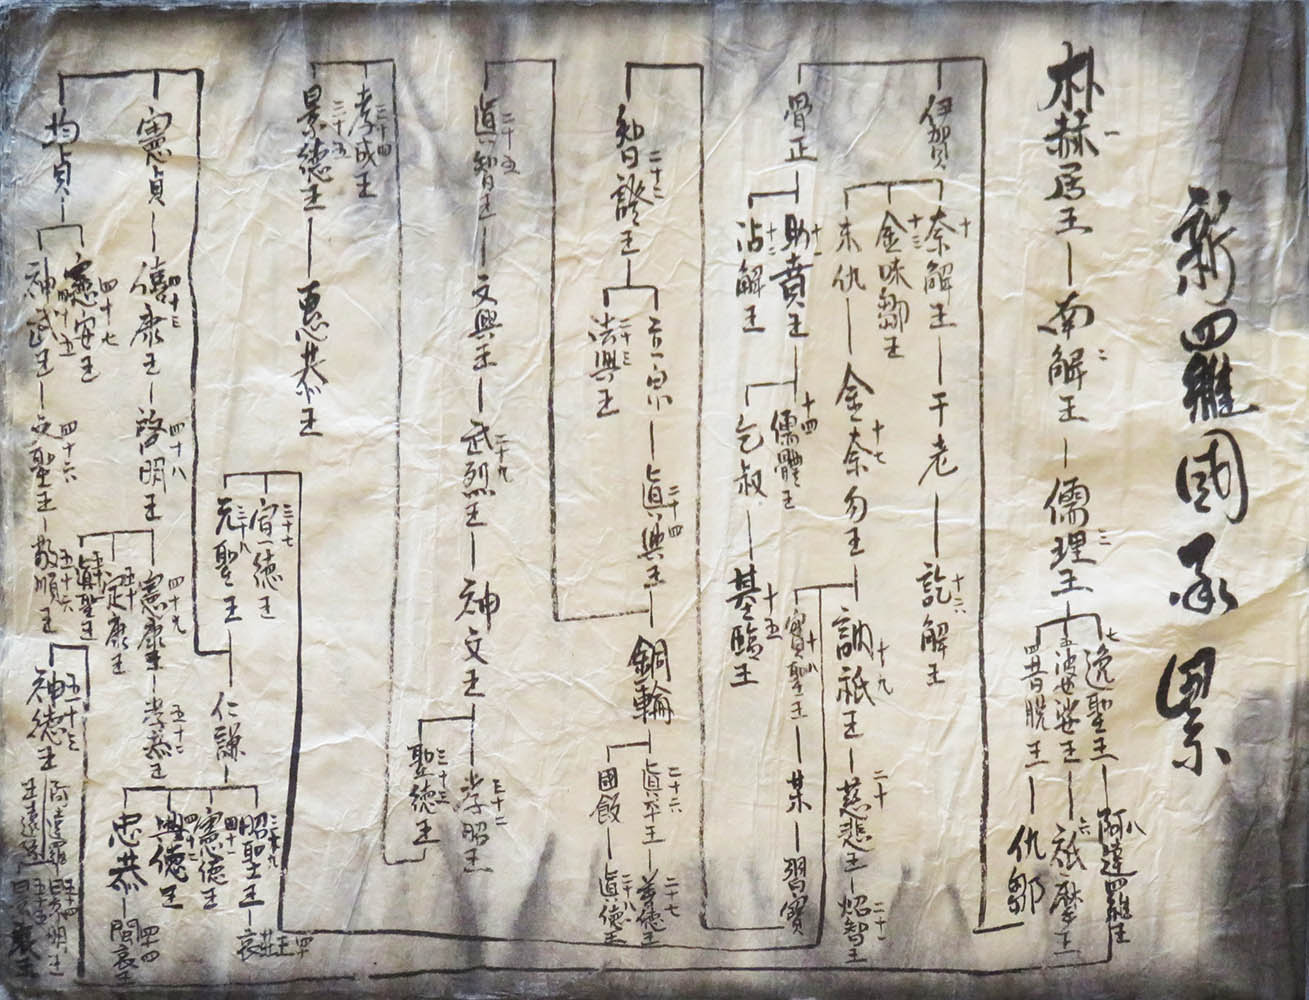 新羅國承累
朴赫居王 一
南解王 二
儒理王 三
逸聖王 七
阿達羅王 八
五 婆娑王
祇摩王 六
四昔脱王
仇鄒
伊賀
奈解王 十
于老
訖解王 十六
金味鄒王 十三
末仇
金奈勿王 十七
訥祇王 十九
慈悲王 二十
炤智王 二十一
實聖王 十八
某
習寶
骨正
助賁王 十一
儒體王 十四
乞叔
基臨王 十五
沾解王 十二
智證王 二十二
立宗
眞興王 二十四
銅輪
眞平王 二十六
善德王 二十七
國飯
眞德王 二十八
法興王 二十三
眞智王 二十五
文興王
武烈王 二十九
神文王
孝昭王 三十二
聖德王 三十三
孝成王 三十四
景德王 三十五
惠恭王
宣德王 三十七
元聖王 三十八
仁謙
昭聖王 三十九
哀莊王 四十
憲德王 四十一
興德王 四十二
忠恭
閔哀王 四十四
憲貞
僖康王 四十三
啓明王 四十八
憲康王 四十九
孝恭王 五十二
定康王 五十
眞聖王
均貞
憲安王 四十七
神武王 四十五
文聖王 四十六
敬順王 五十六
神德王 五十三
阿達羅
景明王 五十四
王遠孫
景哀王 五十五